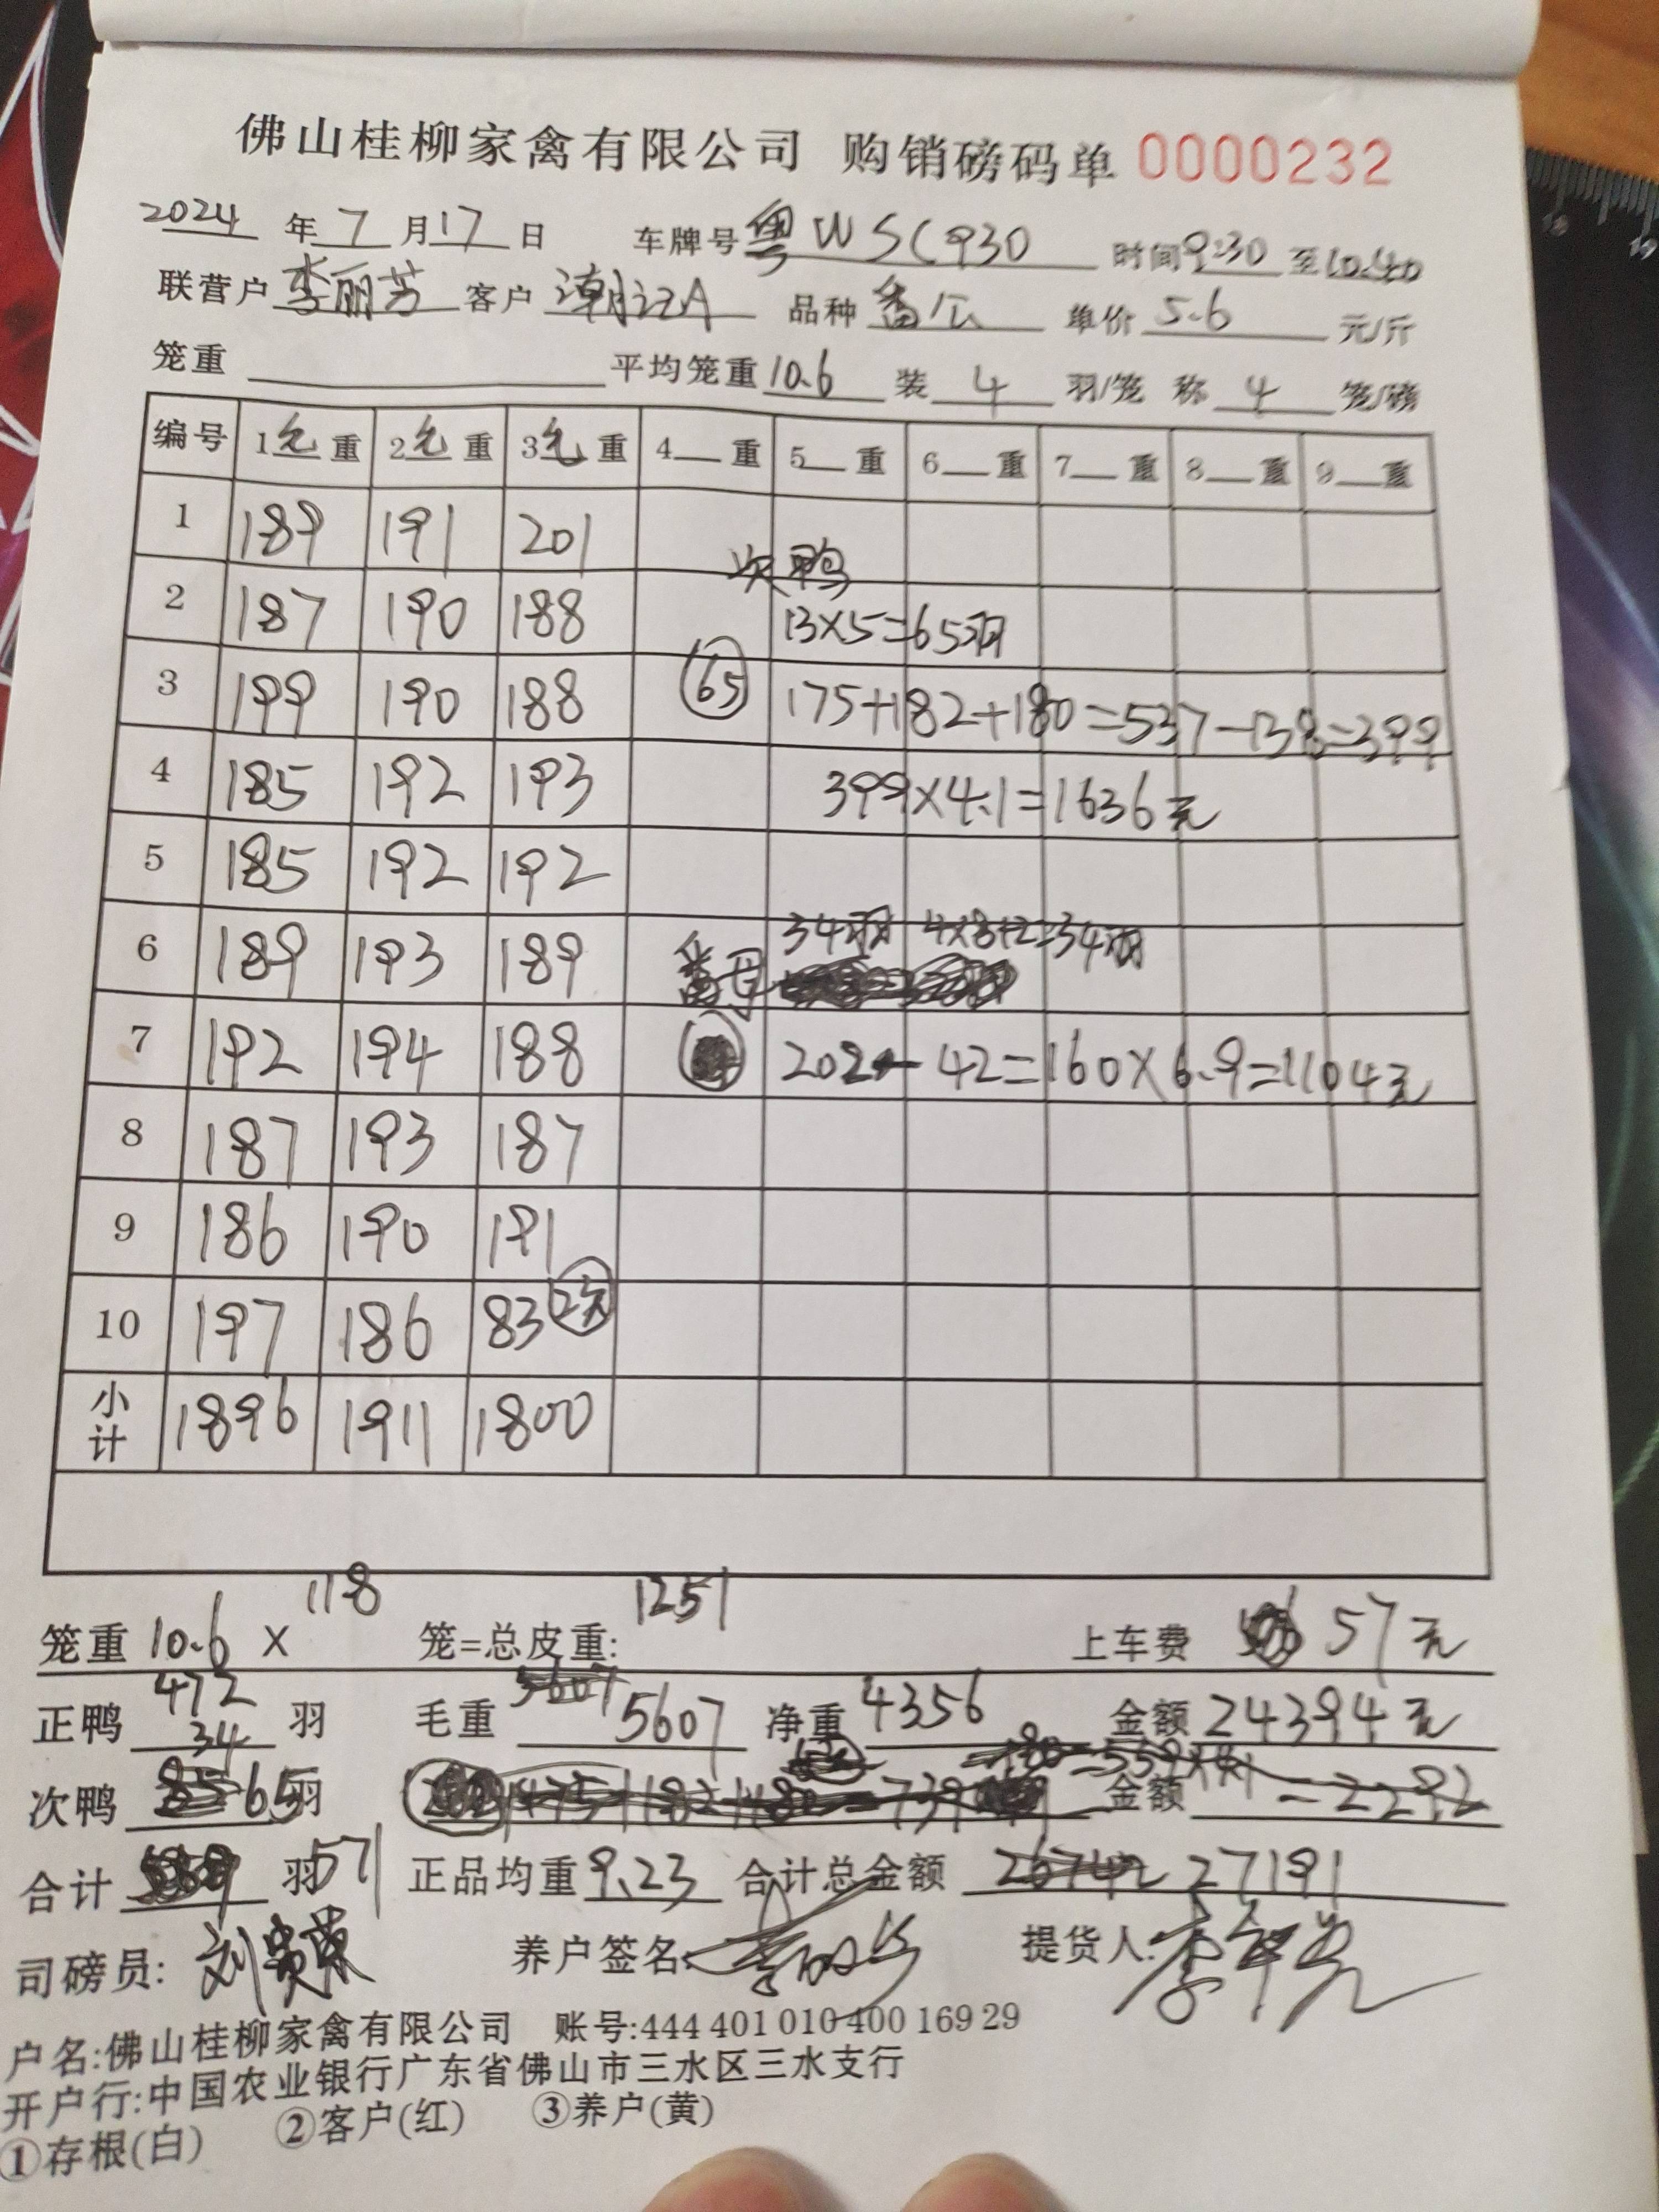 佛山桂柳家禽有限公司 购销磅码单 0000232
2024 年 7 月 17 日 车牌号 粤WSC930 时间 9:30 至 10:40
联营户 李丽芳 客户 潮记A 品种 番公 单价 5.6 元/斤
笼重 平均笼重 10.6 装 4 羽/笼 称 4 笼/磅
编号 1 毛 重 2 毛 重 3 毛 重 4 重 5 重 6 重 7 重 8 重 9 重
1 189 191 201
次鸭
2 187 190 188 13×5=65羽
3 199 190 188 65 175+182+180=537-138=399
4 185 192 193 399×4.1=1636元
5 185 192 192
34羽 4×8+2=34羽
6 189 193 189 番母
7 192 194 188 202-42=160×6.9=1104元
8 187 193 187
9 186 190 191
10 197 186 83 2笼
小计 1896 1911 1800
笼重 10.6 × 118 笼=总皮重: 1251 上车费 57元
正鸭 472 34 羽 毛重 5607 5607 净重 4356 金额 24394元
次鸭 65 羽 金额 =2292
合计 羽 571 正品均重 9.23 合计总金额 27191
司磅员: 养户签名: 提货人:
户名:佛山桂柳家禽有限公司 账号:444 401 010 400 169 29
开户行:中国农业银行广东省佛山市三水区三水支行
①存根(白) ②客户(红) ③养户(黄)